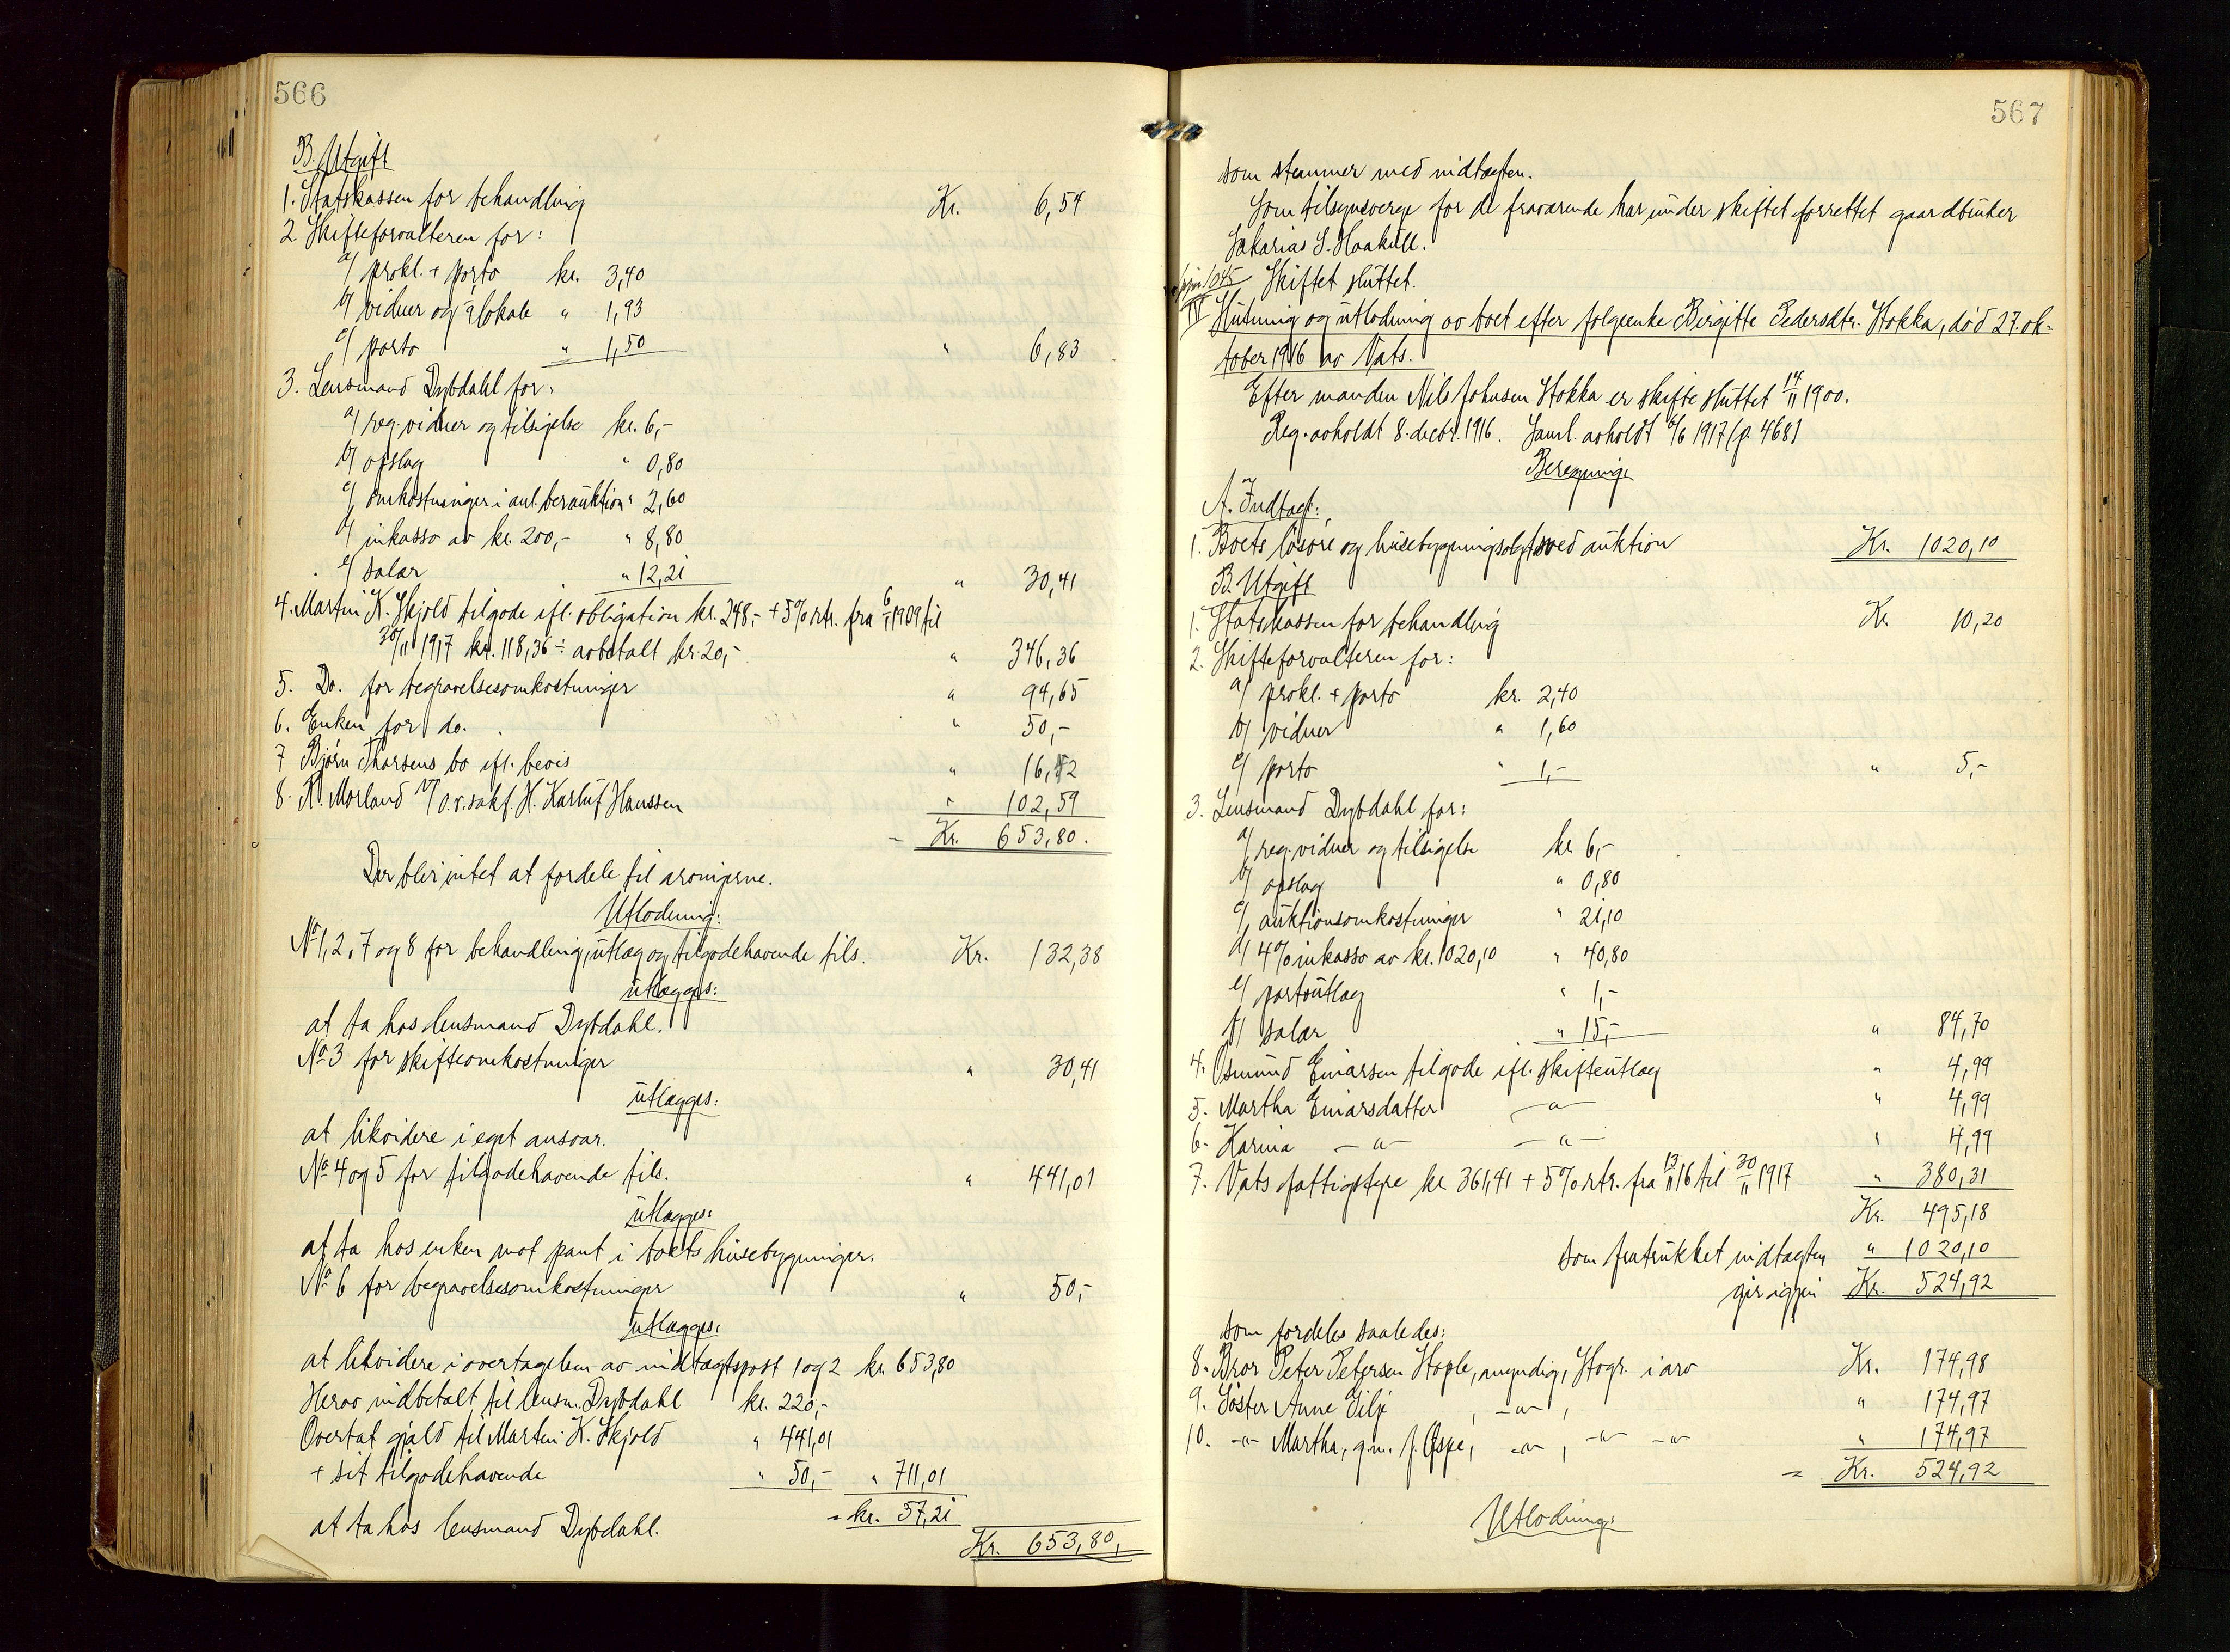 566
B. Utgift
1. Statskassen for behandling Kr. 6,54
2. Skifteforvalteren for:
a/ prokl. + porto kr. 3,40
b/ vidner og lokale " 1,93
c/ porto " 1,50 " 6,83
3. Lensmand Dybdahl for:
a/ reg. vidner og tilsigelse kr. 6,-
b/ opslag " 0,80
c/ omkostninger i anl. ber. auktion " 2,60
d/ inkasso av kr. 200,- " 8,80
e/ salar " 12,21 " 30,41
4. Martin K. Skjold tilgode ifl. obligation kr. 248,- + 5% rtr. fra 6/11 1909 til
30/11 1917 kr. 118,36 ÷ avbetalt kr. 20,- " 346,36
5. Do. for begravelsesomkostninger " 94,65
6. Enken for do. " 50,-
7 Bjørn Thorsens bo ifl. bevis " 16,42
8. K. Morland v/ o.r.sakf. H. Karluf Hanssen " 102,59
= Kr. 653,80.
Der blir intet at fordele til arvingerne.
Utlodning:
No 1, 2, 7 og 8 for behandling, utlæg og tilgodehavende tils. Kr. 132,38
utlægges:
at ta hos lensmand Dybdahl.
No 3 for skifteomkostninger " 30,41
utlægges:
at likvidere i eget ansvar.
No 4 og 5 for tilgodehavende tils. " 441,01
utlægges:
at ta hos enken mot pant i boets husebygninger.
No 6 for begravelsesomkostninger " 50,-
utlægges:
at likvidere i overtagelsen av indtægtspost 1 og 2 kr. 653,80
Herav indbetalt til lensm. Dybdahl kr. 220,-
Overtat gjæld til Martin K. Skjold " 441,01
+ sit tilgodehavende " 50,- " 711,01
= kr. 57,21
at ta hos lensmand Dybdahl.
Kr. 653,80,
567
som stemmer med indtægten.
Som tilsynsverge for de fraværende har under skiftet forrettet gaardbruker
Sakarias S. Haakull.
Skiftet sluttet.
IV Slutning og utlodning av boet efter folgeenke Birgitte Pedersdtr. Stokka, død 27. ok-
tober 1916 av Vats.
Efter manden Nils Johnsen Stokka er skifte sluttet 14/11 1900.
Reg. avholdt 8. decbr. 1916. Saml. avholdt 6/6 1917 (p. 468)
Beregning:
A. Indtægt:
1. Boets løsøre og husebygning solgt ved auktion Kr. 1020,10
B. Utgift
1. Statskassen for behandling Kr 10,20
2. Skifteforvalteren for:
a/ prokl. + porto kr. 2,40
b/ vidner " 1,60
c/ porto " 1,- " 5,-
3. Lensmand Dybdahl for:
a/ reg. vidner og tilsigelse kr 6,-
b/ opslag " 0,80
c/ auktionsomkostninger " 21,10
d/ 4% inkasso av kr. 1020,10 " 40,80
e/ portoutlæg " 1,-
f/ salær " 15,- " 84,70
4. Osmund Einarsen tilgode ifl. skifteutlæg " 4,99
5. Martha Einarsdatter -"- " 4,99
6. Karina -"- -"- " 4,99
7. Vats fattigstyre kr 361,41 + 5% rtr. fra 13/11 16 til 30/11 1917 " 380,31
Kr. 495,18
som fratrukket indtægten " 1020,10
gir igjen Kr. 524,92
som fordeles saaledes:
8. Bror Peter Petersen Hople, myndig, Skogr. i arv Kr. 174,98
9. Søster Anne Silje , -"- , " 174,97
10. -"- Martha, gm. f. Espe, -"- , -"- -"- " 174,97
= Kr. 524,92
Utlodning: